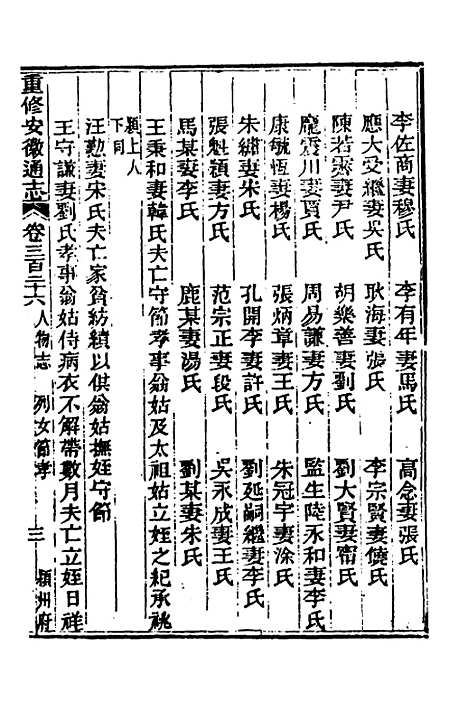 李佐商妻穆氏　李有年妻馬氏　高念妻張氏
應大受繼妻吳氏　耿海妻張氏　李宗賢妻饒氏
陳若霙妻尹氏　胡樂善妻劉氏　劉大賢妻甯氏
龐震川妻賈氏　周易謙妻方氏　監生陸永和妻李氏
康毓恆妻楊氏　張炳章妻王氏　朱冠宇妻涂氏
朱繡妻朱氏　孔開李妻許氏　劉延嗣繼妻李氏
張魁穎妻方氏　范宗正妻段氏　吳永成妻王氏
馬某妻李氏　鹿某妻湯氏　劉某妻朱氏
王秉和妻韓氏夫亡守節孝事翁姑及太祖姑立姪之紀承祧
潁上人
下同
汪勤妻宋氏夫亡家貧紡績以供翁姑撫姪守節
王守謙妻劉氏孝事翁姑侍病衣不解帶數月夫亡立姪日祥
重修安徽通志　卷三百二十六　人物志　列女節孝　三　潁州府